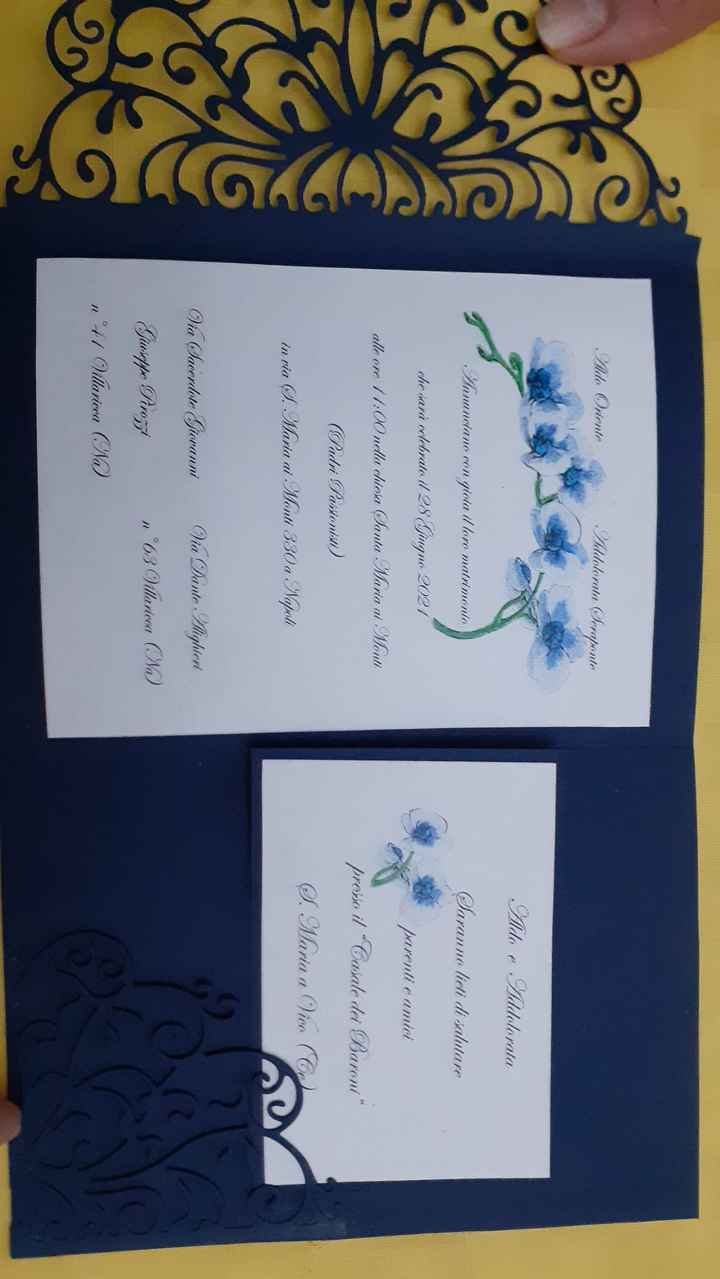 Aldo Oriente Addolorata Seraponte
Annunciano con gioia il loro matrimonio
che sarà celebrato il 28 Giugno 2021
alle ore 11:00 nella chiesa Santa Maria ai Monti
(Padri Passionisti)
in via S. Maria ai Monti 330 a Napoli
Via Sacerdote Giovanni Via Dante Alighieri
Giuseppe Pirozzi n°63 Villaricca (Na)
n°41 Villaricca (Na)
Aldo e Addolorata
Saranno lieti di salutare
parenti e amici
presso il "Casale dei Baroni"
S. Maria a Vico (Ce)